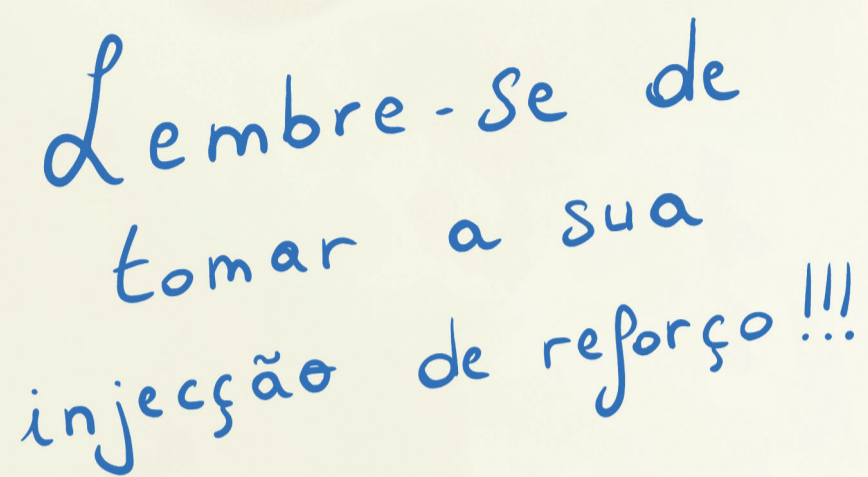 Lembre-se de
tomar a sua
injecção de reforço!!!